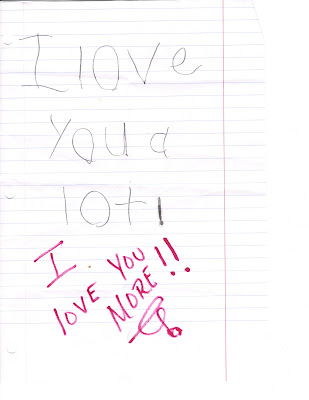 I love
you a
lot!
I
LOVE YOU
MORE!!